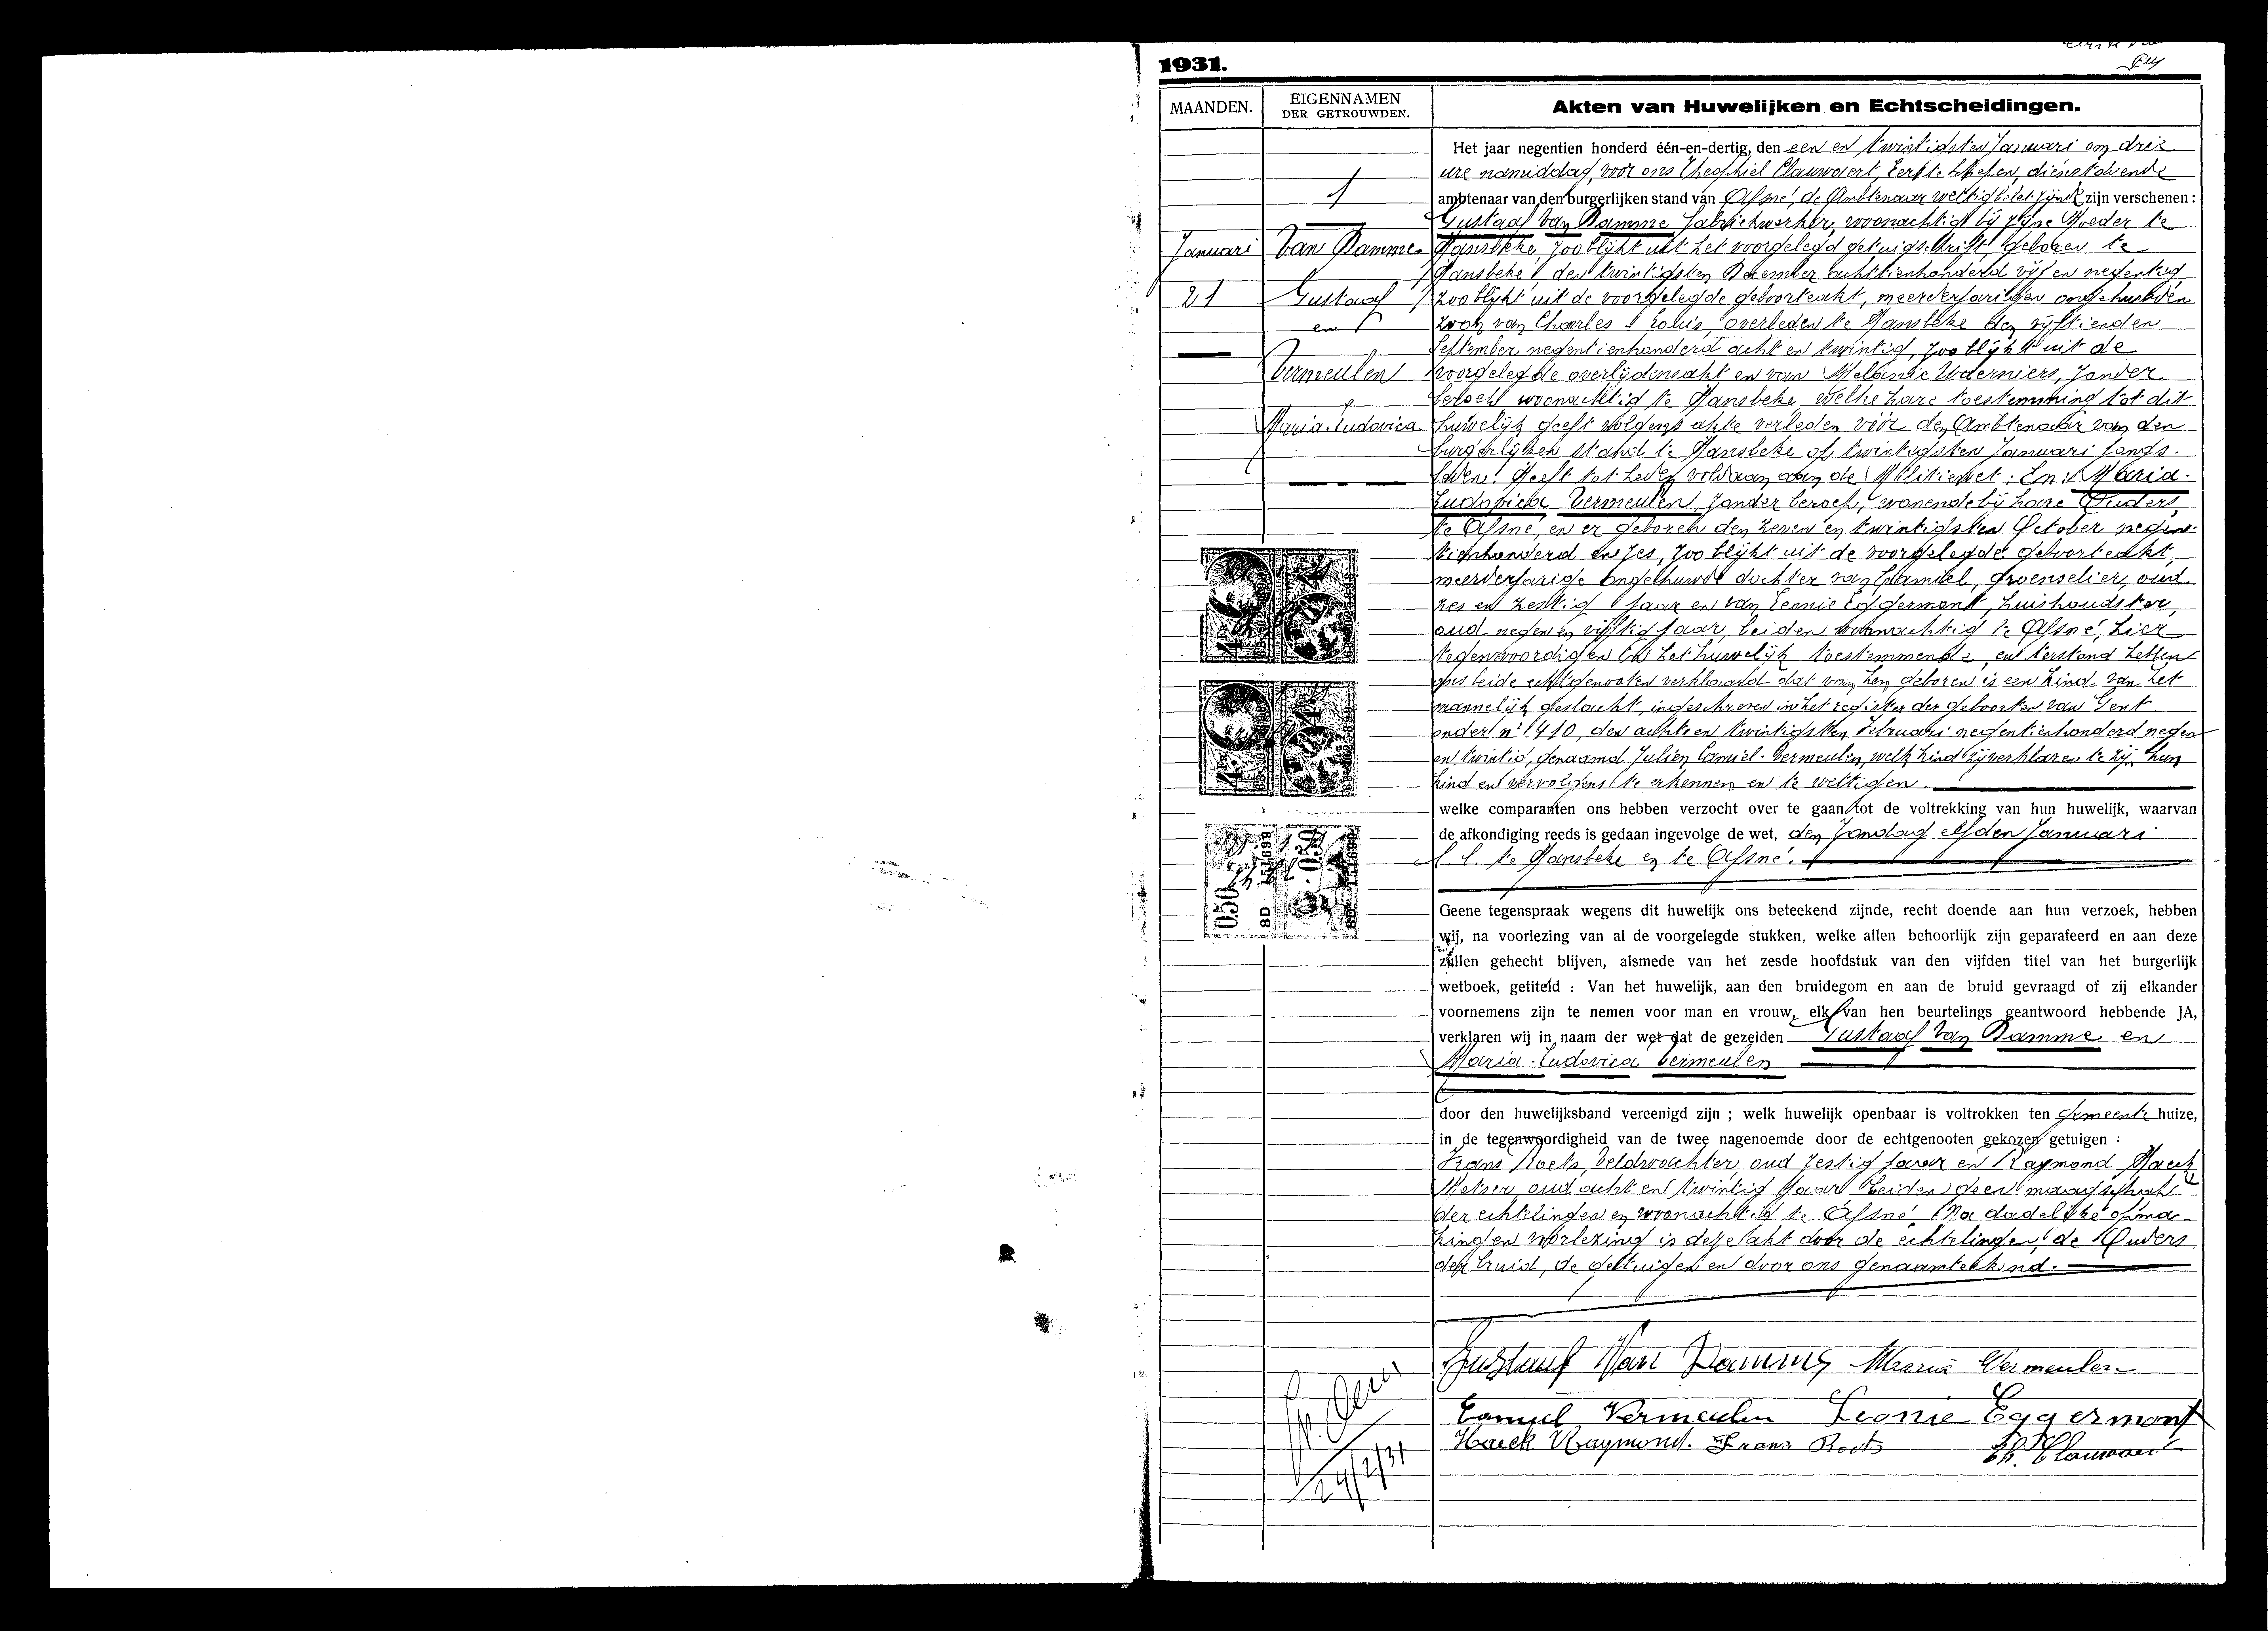 1931.
MAANDEN.
EIGENNAMEN
DER GETROUWDEN.
Akten van Huwelijken en Echtscheidingen.
1
Januari
21
Van Damme
Gustaaf
en
Vermeulen
Maria-Ludovica
Het jaar negentien honderd één-en-dertig, den een en twintigsten Januari om drie
ure namiddag, voor ons Theophiel Clauwaert, Eerste Schepen, dienstdoende
ambtenaar van den burgerlijken stand van Afsné, de Ambtenaar wettig belet zijnde zijn verschenen :
Gustaaf Van Damme fabriekwerker, woonachtigt bij zijne Moeder te
Hansbeke, zoo blijkt uit het voorgelegd getuigschrift, geboren te
Hansbeke, den twintigsten December achttienhonderd vijf en negentig
zoo blijkt uit de voorgelegde geboorteakt, meerderjarigen ongehuwden
zoon van Charles Louis, overleden te Hansbeke den vijftienden
September negentienhonderd acht en twintig, zoo blijkt uit de
voorgelegde overlijdensakt en van Melanie Uderniers, zonder
beroep woonachtig te Hansbeke welke hare toestemming tot dit
huwelijk geeft volgens akte verleden vóór den Ambtenaar van den
burgerlijken stand te Hansbeke op twintigsten Januari jongs-
leden. Heeft tot heden voldaan aan de Militiewet. En: Maria-
Ludovica Vermeulen, zonder beroep, wonende bij hare Ouders,
te Afsné, en er geboren den zeven en twintigsten October negen-
tienhonderd en zes, zoo blijkt uit de voorgelegde geboorteakt,
meerderjarige ongehuwde dochter van Camiel, groenselier, oud
zes en zestig jaar en van Leonie Eggermont, huishoudster,
oud negen en vijftig jaar, beiden woonachtig te Afsné, hier
tegenwoordig en in het huwelijk toestemmende, en terstond hebben
ons beide echtgenooten verklaard dat van hen geboren is een kind van het
mannelijk geslacht, ingeschreven in het register der geboorten van Gent
onder n° 410, den acht en twintigsten Februari negentienhonderd negen
en twintig, genaamd Julien Camiel Vermeulen, welk kind zij verklaren te zijn hun
kind en vervolgens te erkennen en te wettigen.
welke comparanten ons hebben verzocht over te gaan tot de voltrekking van hun huwelijk, waarvan
de afkondiging reeds is gedaan ingevolge de wet, den Zondag elfden Januari
l. l. te Hansbeke en te Afsné.
Geene tegenspraak wegens dit huwelijk ons beteekend zijnde, recht doende aan hun verzoek, hebben
wij, na voorlezing van al de voorgelegde stukken, welke allen behoorlijk zijn geparafeerd en aan deze
zullen gehecht blijven, alsmede van het zesde hoofdstuk van den vijfden titel van het burgerlijk
wetboek, getiteld : Van het huwelijk, aan den bruidegom en aan de bruid gevraagd of zij elkander
voornemens zijn te nemen voor man en vrouw, elk van hen beurtelings geantwoord hebbende JA,
verklaren wij in naam der wet dat de gezeiden Gustaaf Van Damme en
Maria-Ludovica Vermeulen
door den huwelijksband vereenigd zijn ; welk huwelijk openbaar is voltrokken ten Gemeente huize,
in de tegenwoordigheid van de twee nagenoemde door de echtgenooten gekozen getuigen :
Frans Roets, Veldwachter, oud zestig jaar en Raymond Haeck
Metser, oud acht en twintig jaar beiden geen maagschap
der echtelingen en woonachtig te Afsné. Na dadelijke opma-
king en voorlezing is deze akt door de echtelingen, de Ouders
der bruid, de getuigen en door ons genaamteekend.
Gustaaf Van Damme Maria Vermeulen
Camiel Vermeulen Leonie Eggermont
Haeck Raymond. Frans Roets Th. Clauwaert
24/2/31